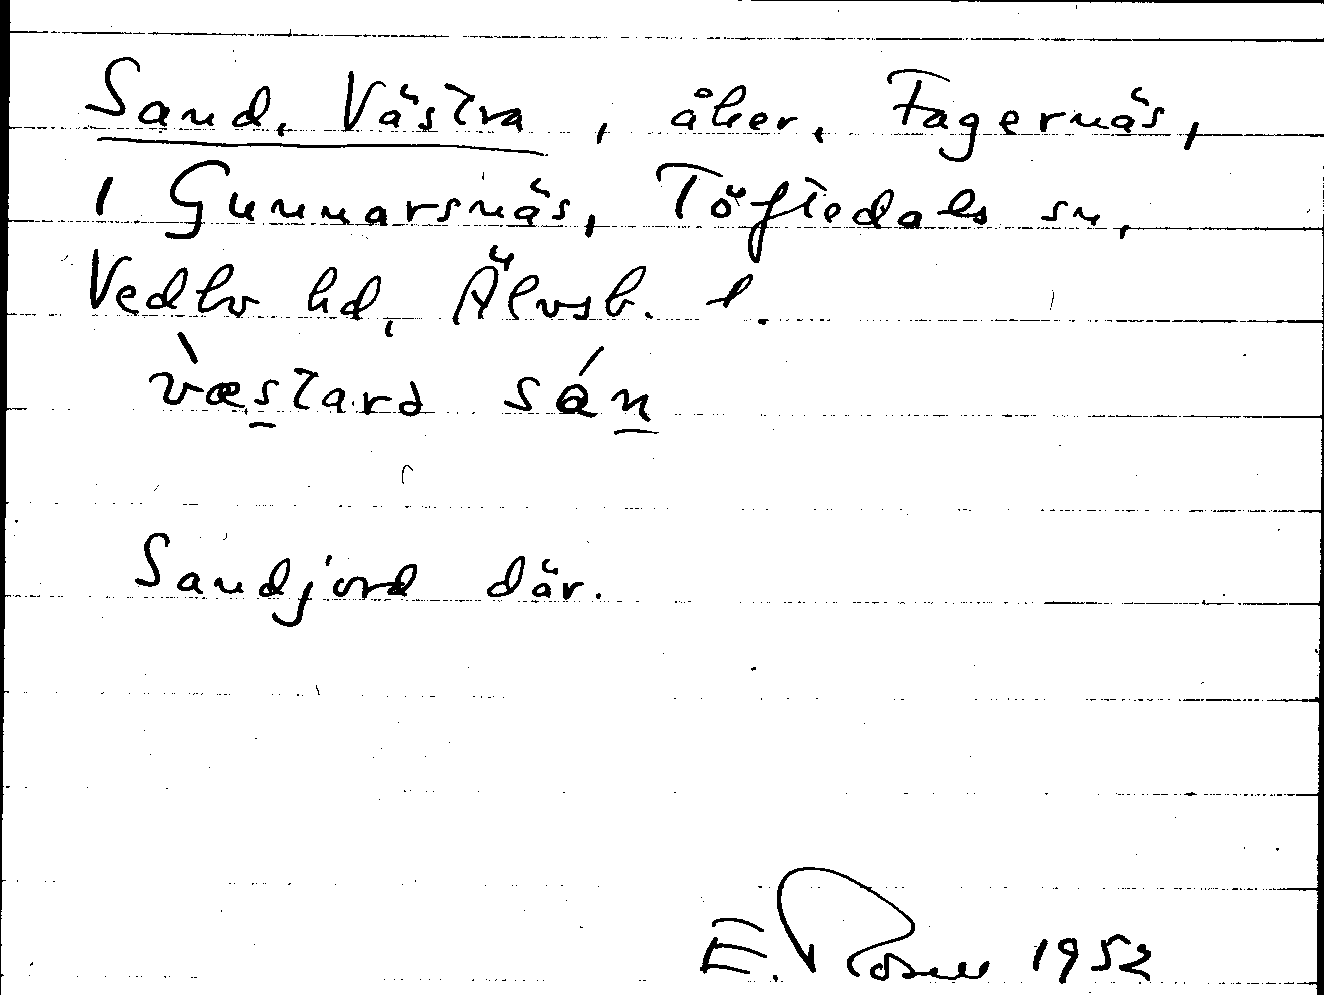 Sand, Västra, åker, Fagernäs,
1 Gunnarsnäs, Töftedals sn,
Vedbo hd, Älvsb. l.
væstard sán
Sandjord där.
E. Rosell 1952